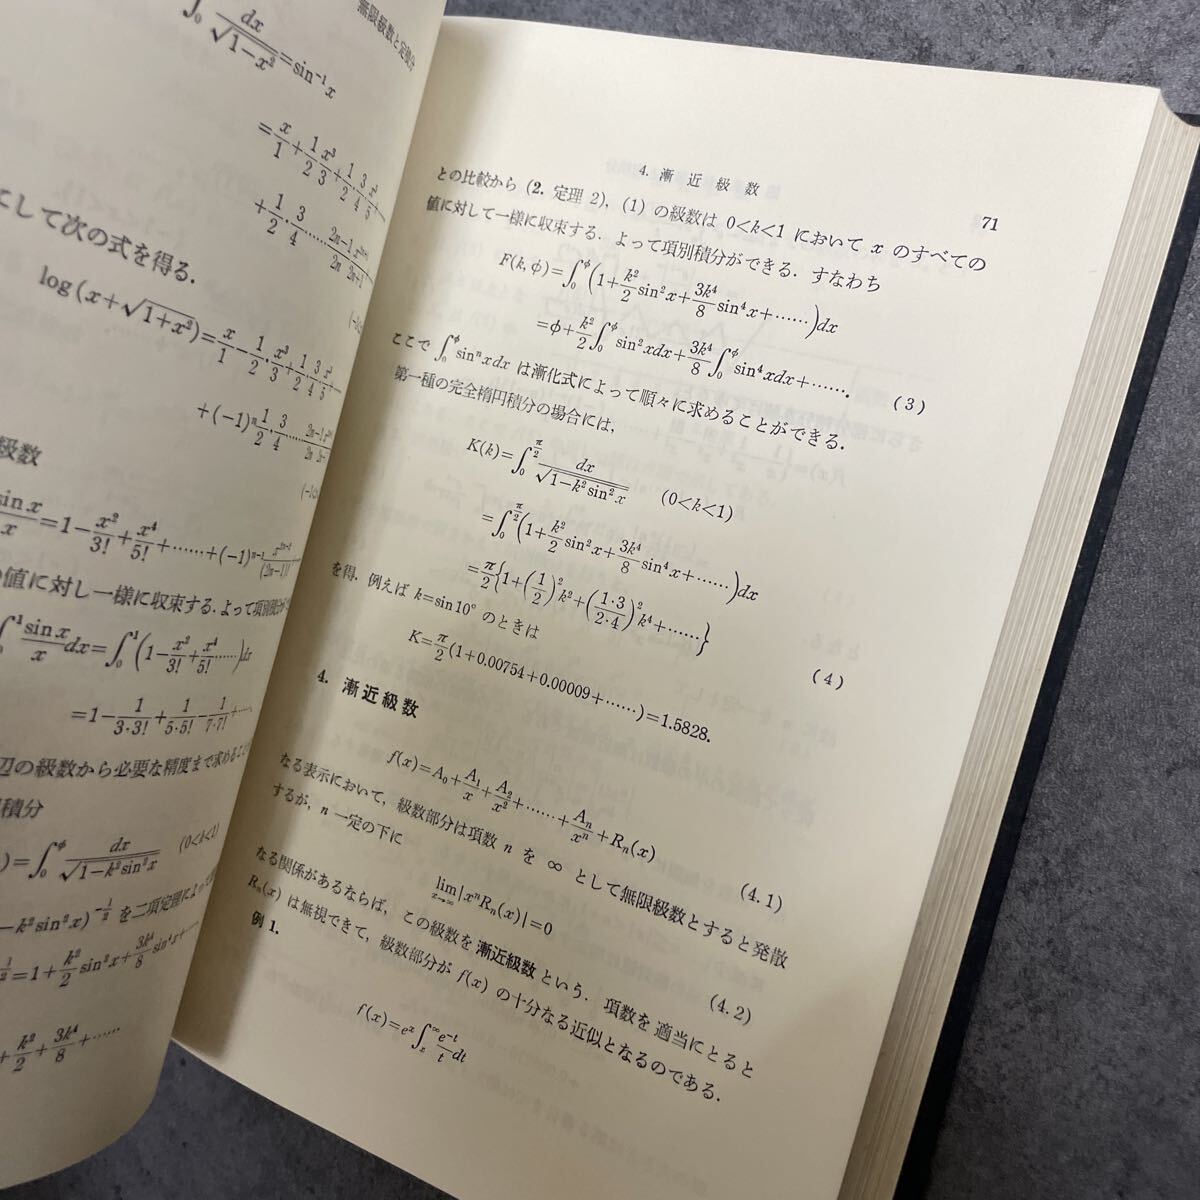 無限級数と定積分
∫₀ dx/√(1−x²) = sin⁻¹x
= x/1 + 1/2 x³/3 + 1/2·3/4 x⁵/5
+ 1/2·3/4……2n−1/2n x²ⁿ⁺¹/2n+1
して次の式を得る.
log(x+√(1+x²)) = x/1 − 1/2·x³/3 + 1/2·3/4 x⁵/5
+(−1)ⁿ 1/2·3/4……2n−1/2n
級数
sin x/x = 1 − x²/3! + x⁴/5! + …… + (−1)ⁿ⁻¹ x²ⁿ⁻¹/(2n−1)!
値に対し一様に収束する. よって項別積分が
∫₀¹ sin x/x dx = ∫₀¹(1 − x²/3! + x⁴/5!……)dx
= 1 − 1/3·3! + 1/5·5! − 1/7·7! + ……
辺の級数から必要な精度まで求めること
積分
) = ∫₀^φ dx/√(1−k²sin²x) (0<k<1)
−k²sin²x)^(−1/2) を二項定理によって
= 1 + k²/2 sin²x + 3k⁴/8 sin⁴x + ……
+ k²/2 + 3k⁴/8 + ……
4. 漸近級数
71
との比較から (2. 定理 2), (1) の級数は 0<k<1 において x のすべての
値に対して一様に収束する. よって項別積分ができる. すなわち
F(k, φ) = ∫₀^φ (1 + k²/2 sin²x + 3k⁴/8 sin⁴x + ……)dx
= φ + k²/2 ∫₀^φ sin²xdx + 3k⁴/8 ∫₀^φ sin⁴xdx + ……. (3)
ここで ∫₀^φ sinⁿxdx は漸化式によって順々に求めることができる.
第一種の完全楕円積分の場合には,
K(k) = ∫₀^(π/2) dx/√(1−k²sin²x) (0<k<1)
= ∫₀^(π/2) (1 + k²/2 sin²x + 3k⁴/8 sin⁴x + ……)dx
= π/2{1 + (1/2)²k² + (1·3/2·4)²k⁴ + ……} (4)
を得. 例えば k=sin10° のときは
K = π/2(1+0.00754+0.00009+……) = 1.5828.
4. 漸近級数
f(x) = A₀ + A₁/x + A₂/x² + …… + Aₙ/xⁿ + Rₙ(x) (4.1)
なる表示において, 級数部分は項数 n を ∞ として無限級数とすると発散
するが, n 一定の下に
lim x→∞ |xⁿRₙ(x)| = 0 (4.2)
なる関係があるならば, この級数を漸近級数という. 項数を適当にとると
Rₙ(x) は無視できて, 級数部分が f(x) の十分なる近似となるのである.
例 1.
f(x) = eˣ ∫ₓ^∞ e⁻ᵗ/t dt